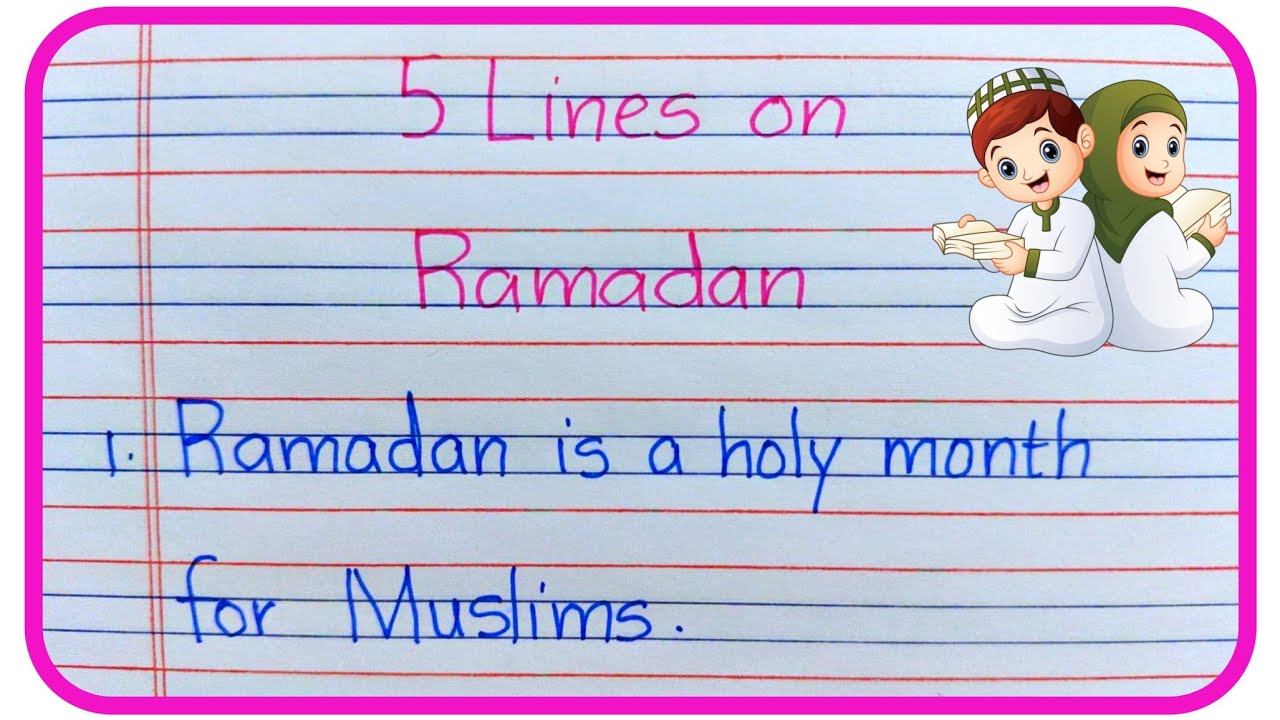 5 Lines on
Ramadan
1. Ramadan is a holy month
for Muslims.